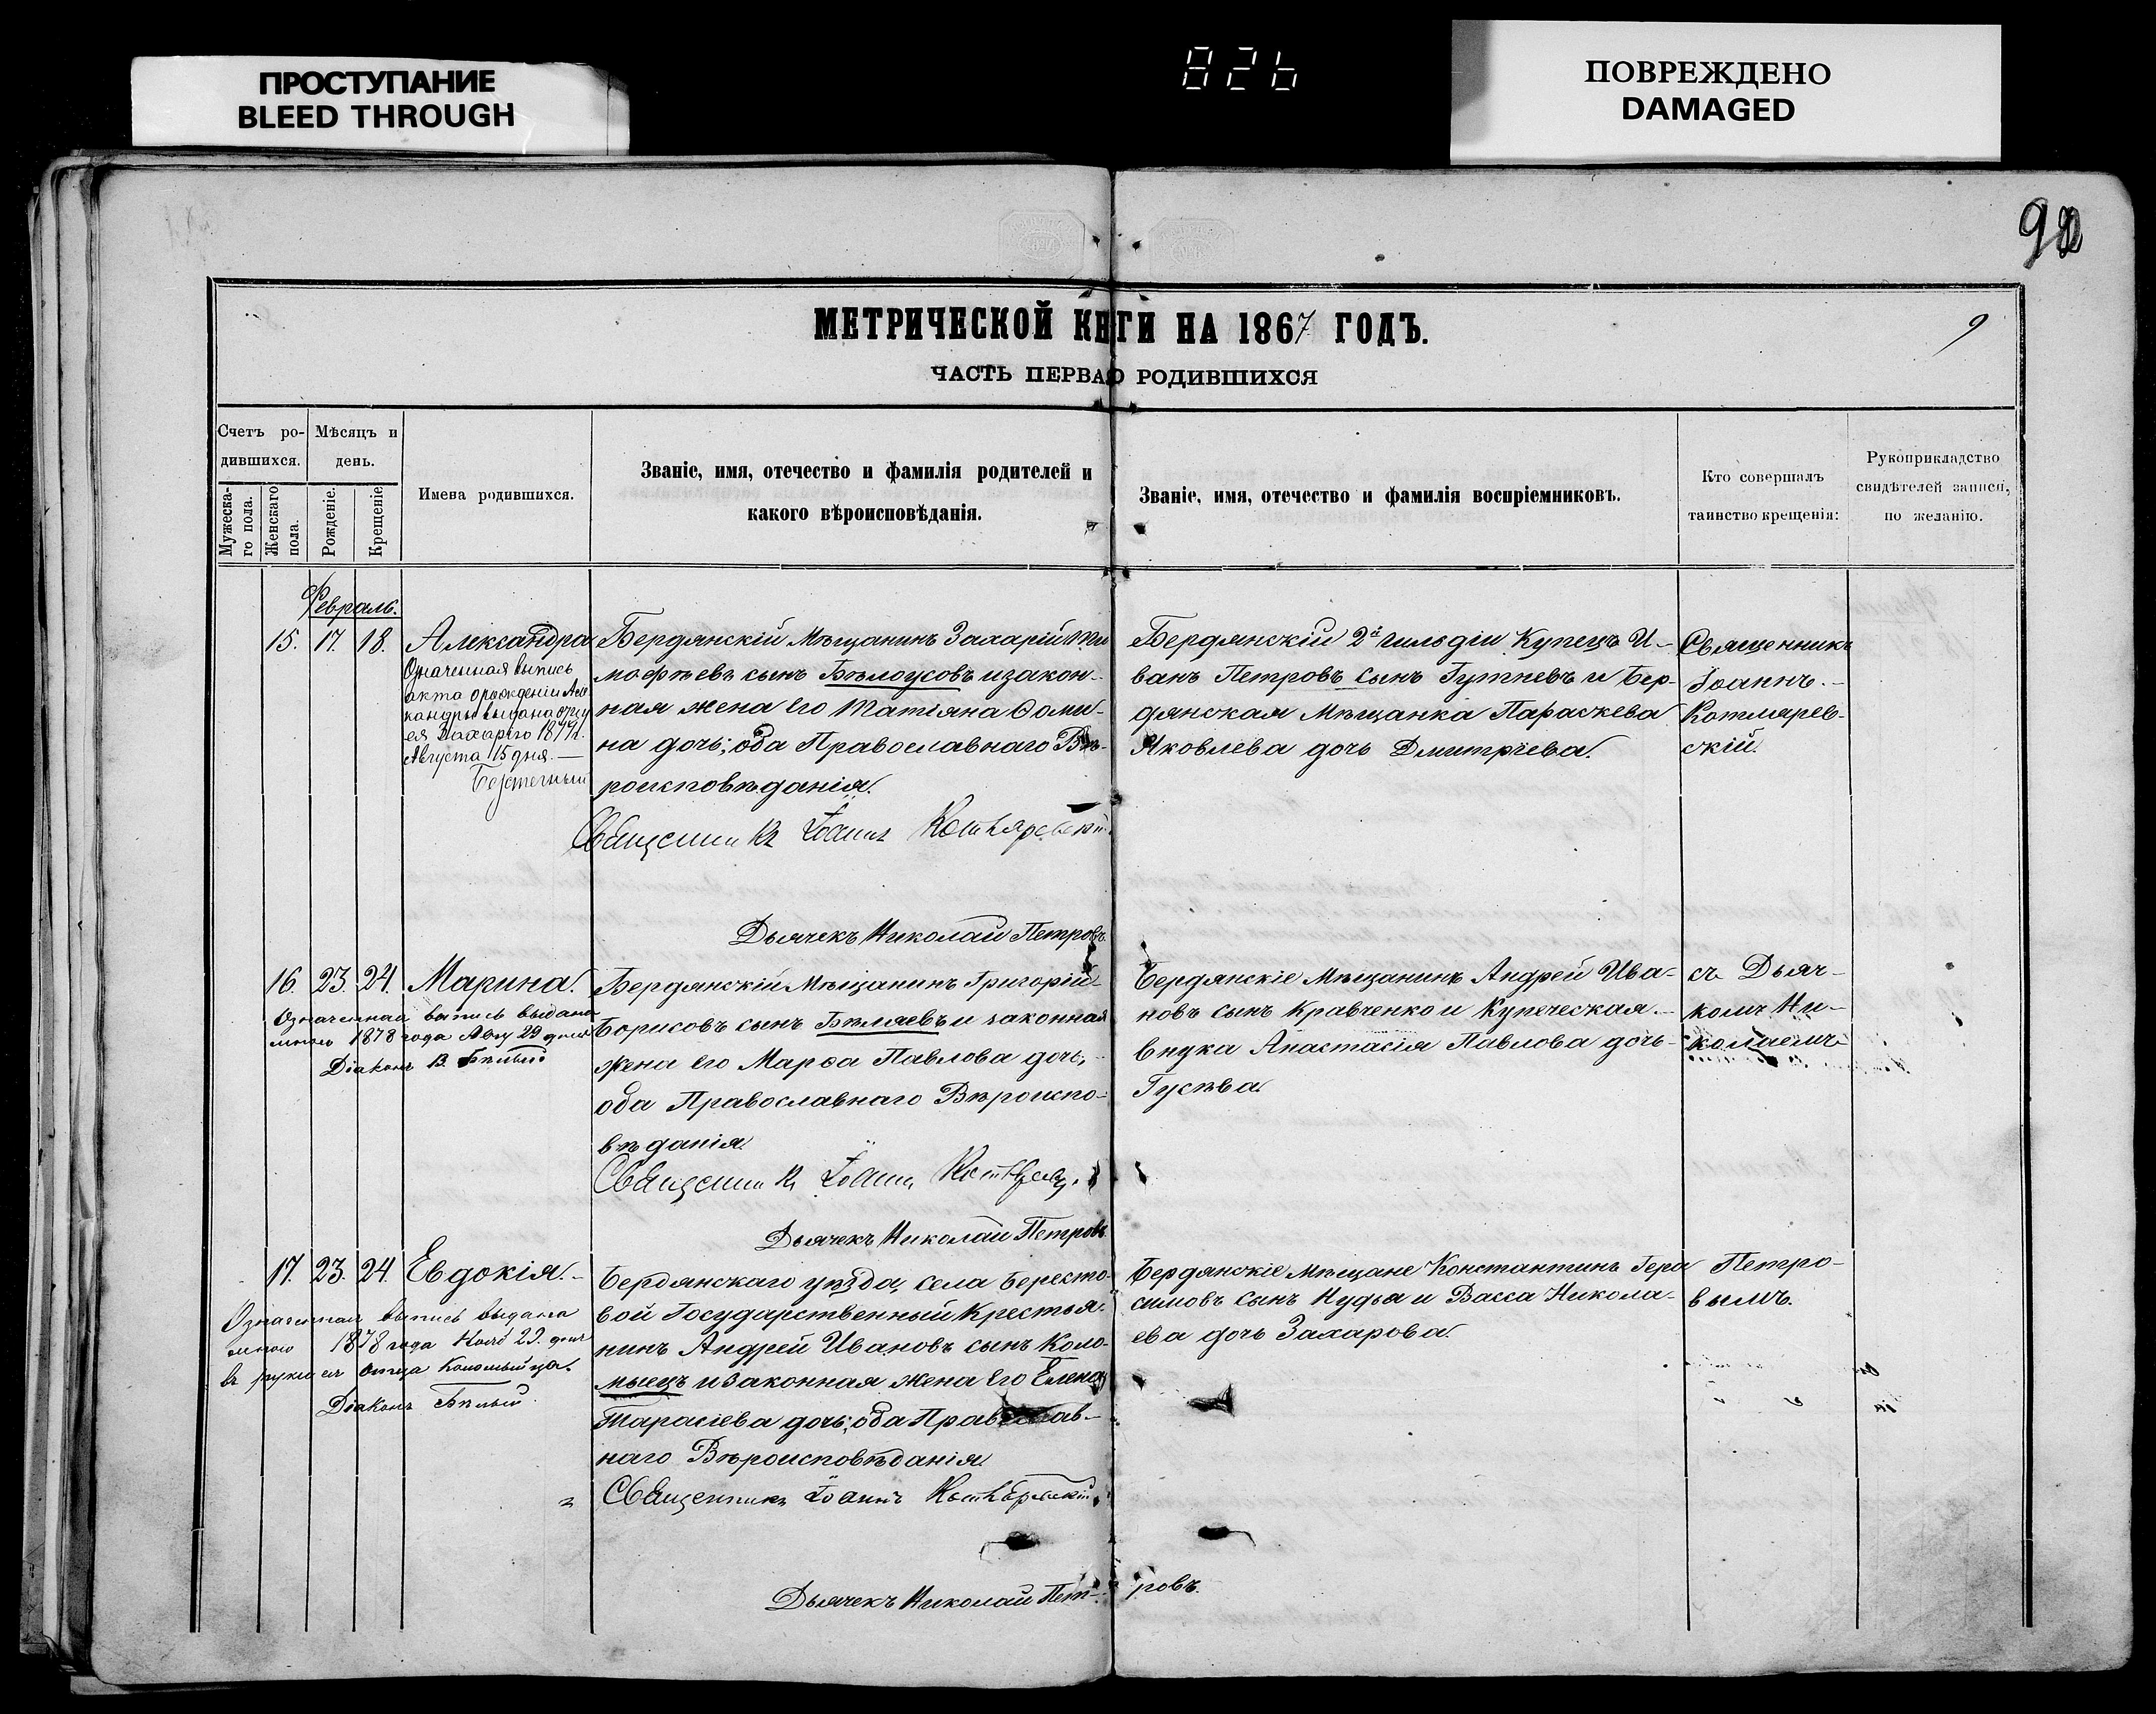 ПРОСТУПАНИЕ
BLEED THROUGH
826
ПОВРЕЖДЕНО
DAMAGED
МЕТРИЧЕСКОЙ КНГИ НА 1867 ГОДЪ.
9
ЧАСТЬ ПЕРВАЯ О РОДИВШИХСЯ
Счетъ ро-
дившихся.
Мужеска-
го пола.
Женскаго
пола.
Мѣсяцъ и
день.
Рожденіе.
Крещеніе
Имена родившихся.
Званіе, имя, отечество и фамилія родителей и
какого вѣроисповѣданія.
Званіе, имя, отечество и фамилія воспріемниковъ.
Кто совершалъ
таинство крещенія:
Рукоприкладство
свидѣтелей записи,
по желанію.
Февраль.
15. 17. 18. Александра
Означенная выпись
акта о рожденіи Але
кандры выдана отцу
ея Захарію 1877 г.
Августа 15 дня.
Бердянскій Мѣщанинъ Захарій Ти
мофѣевъ сынъ Бѣлоусовъ и закон-
ная жена его Татіяна Ѳоми-
на дочь; оба Православнаго Вѣ-
роисповѣданія.
Священникъ Іоаннъ Котляревскій
Дьячекъ Николай Петровъ
Бердянскій 2й гильдіи Купецъ И-
ванъ Петровъ сынъ Гутневъ и Бер-
дянская Мѣщанка Параскева
Яковлева дочь Дмитріева.
Священникъ
Іоаннъ
Котлярев-
скій.
16. 23. 24. Марина.
Означенная выпись выдана
мною 1878 года Авгу 29 дня
Діаконъ В. Бѣлый
Бердянскій Мѣщанинъ Григорій
Борисовъ сынъ Бѣляевъ и законная
жена его Марѳа Павлова дочь;
оба Православнаго Вѣроиспо-
вѣданія.
Священникъ Іоаннъ
Дьячекъ Николай Петровъ
Бердянскіе Мѣщанинъ Андрей Ива-
новъ сынъ Кравченко и Купеческая
внука Анастасія Павлова дочь
Гусѣва.
съ Дьяч-
комъ Ни-
колаемъ
17. 23. 24. Евдокія.
Означенная выпись выдана
мною 1878 года Нояб 29. дня
въ руки ея отца Коломыйца.
Діаконъ Бѣлый.
Бердянскаго уѣзда, села Бересто-
вой Государственный Крестья-
нинъ Андрей Ивановъ сынъ Коло-
мыецъ и законная жена его Елена
Тарасіева дочь; оба Православ-
наго Вѣроисповѣданія.
Священникъ Іоаннъ Котляревскій
Дьячекъ Николай Пет-ровъ.
Бердянскіе Мѣщане Константинъ Гера
симовъ сынъ Кудья и Васса Никола-
ева дочь Захарова.
Петро-
вымъ.